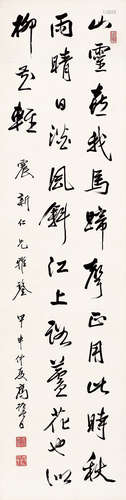 山靈喜我馬蹄聲正用此時秋
雨晴日淡風斜江上路蘆花也似
柳花輕
震新仁兄雅鑒 甲申仲夏高